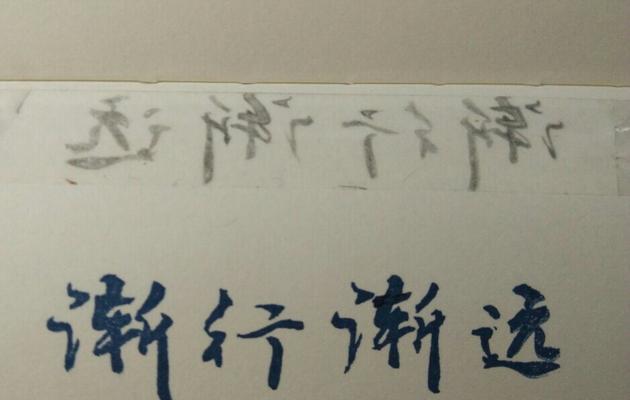 渐行渐远
渐行渐远